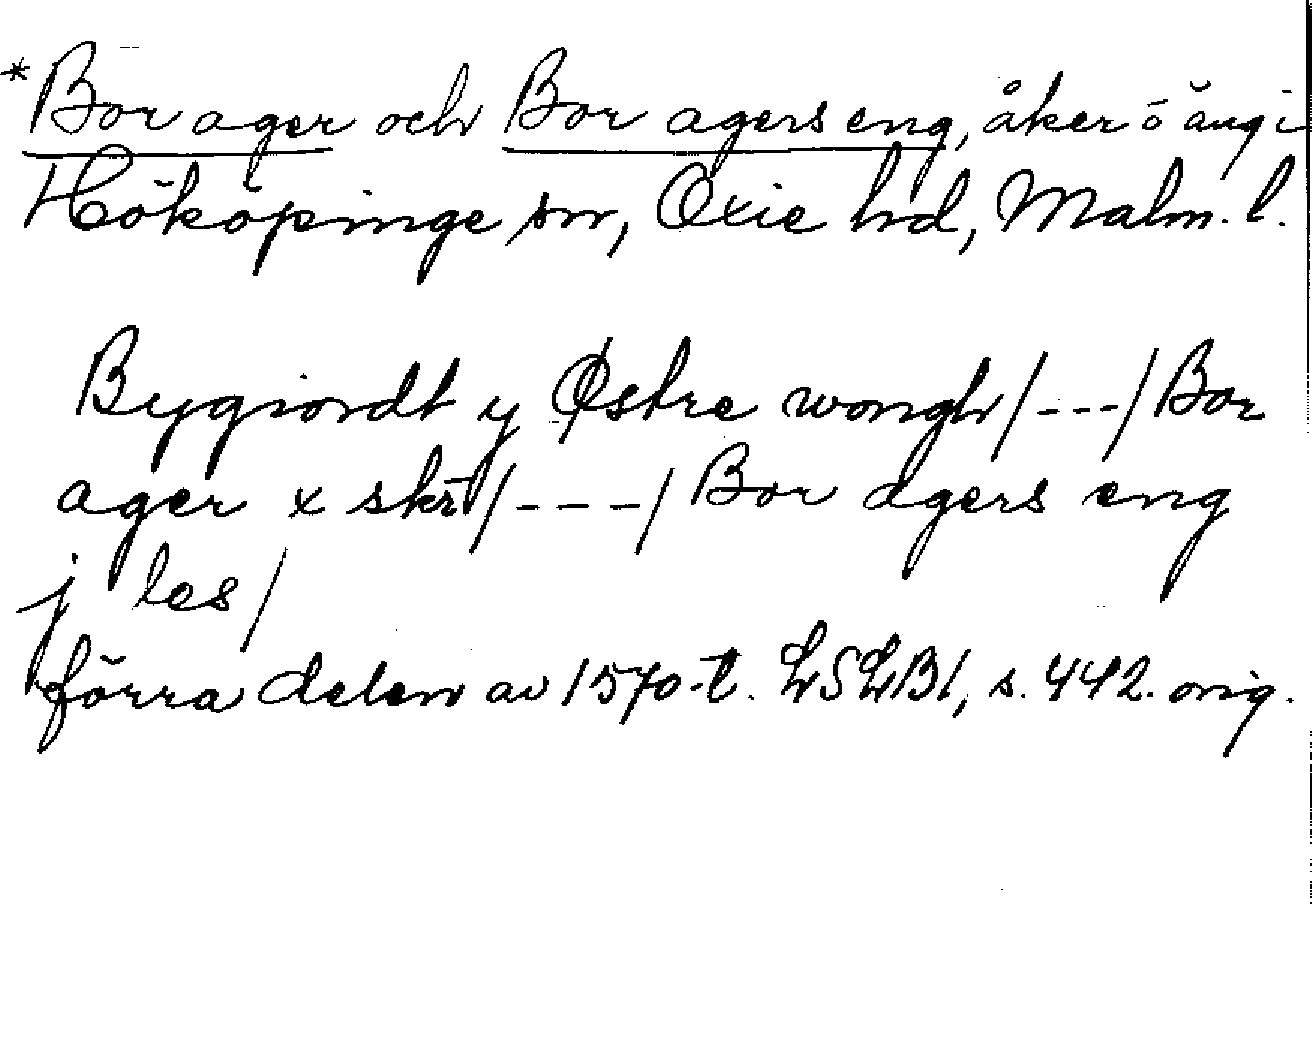 *Bor ager och Bor agers eng, åker o äng i
Hököpinge sn, Oxie hd, Malm. l.
Bygiordt y Østre wongh/---/Bor
ager x skr/---/Bor agers eng
j les/
förra delen av 1570-t. LSLB1, s. 442. orig.